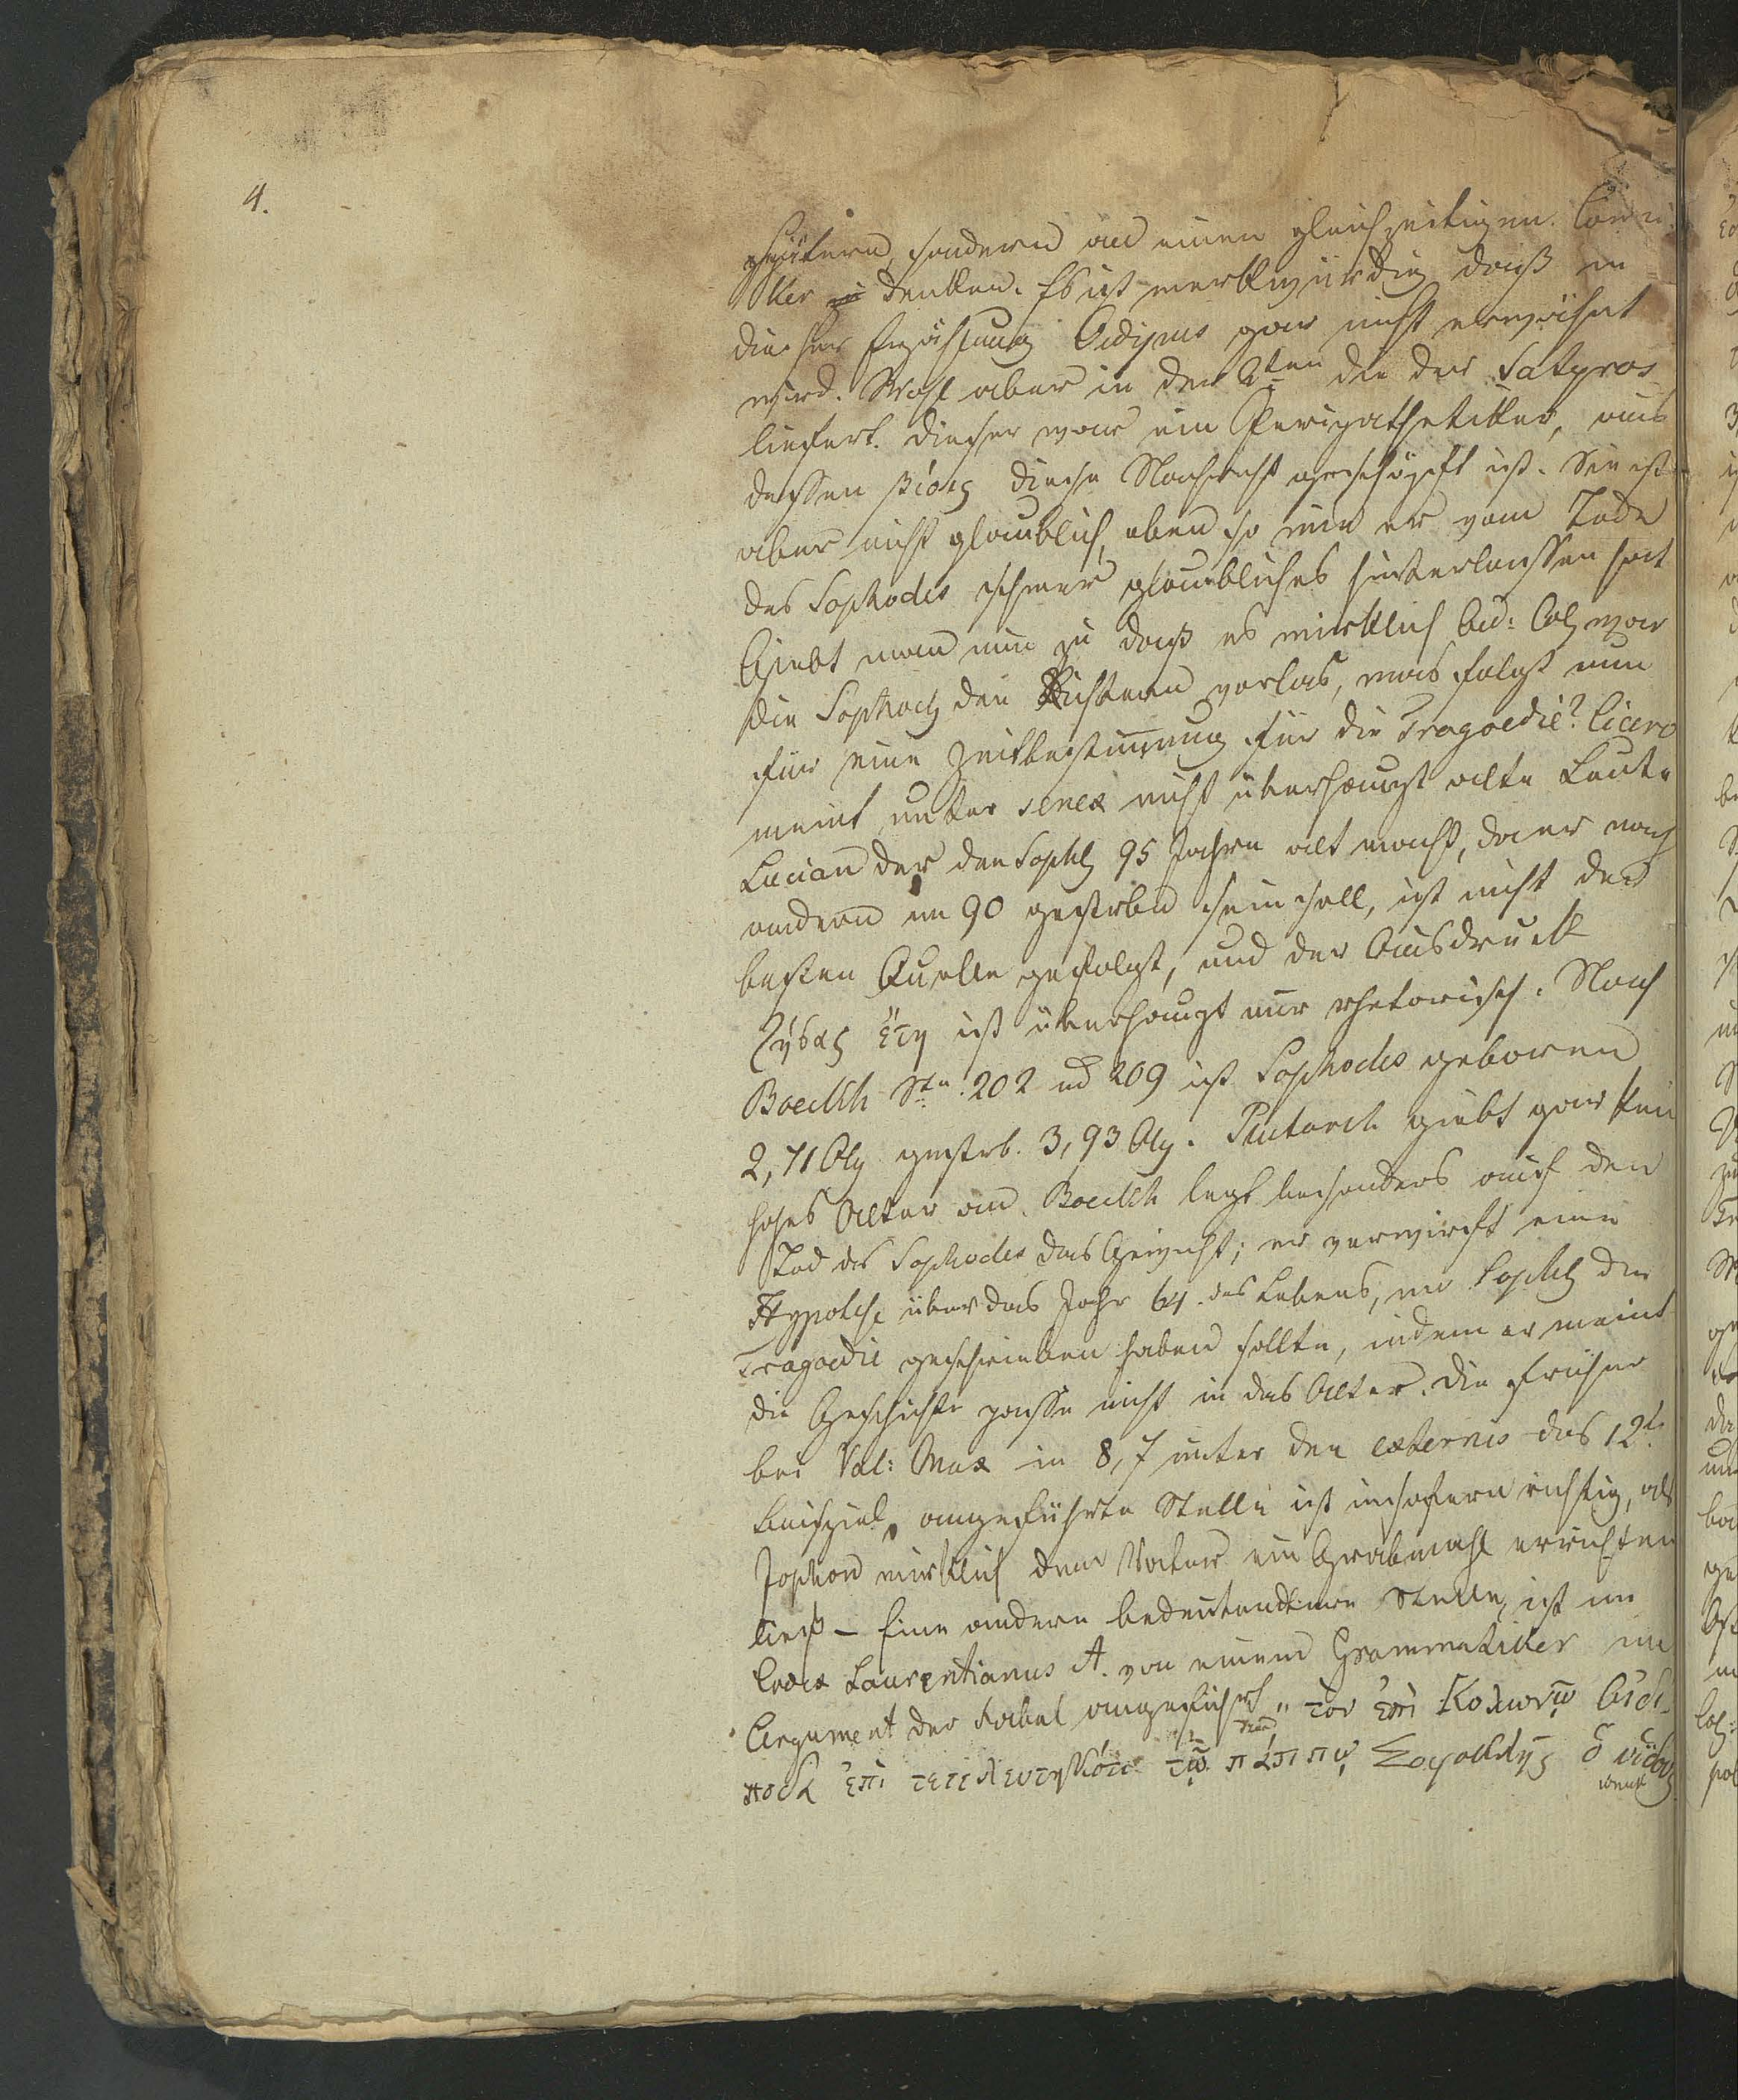 4.
spätern, sondern an einen gleichzeitigen Comi
ker zu denken. Es ist merkwürdig daß in
dieser Erzählung Oidipus gar nicht erwähnt
wird. Wohl aber in der 2ten die der Satyros
liefert. Dieser war ein Peripathetiker, aus
dessen βίοις diese Nachricht geschöpft ist. Sie ist
aber nicht glaublich, eben so wie er vom Tode
des Sophocles schwer glaubliches hinterlassen hat
Giebt man nun zu daß es wirklich Oid: Col war
die Sophocl den Richtern vorlas, was folgt nun
für eine Zeitbestimung für die Tragoedie? Cicero
meint unter senex nicht überhaupt alte Leute
Lucian der den Sophl 95 Jahren alt macht, da er nach
andern im 90 gestorben sein soll, ist nicht der
besten Quelle gefolgt, und der Ausdruck
ζήσας ἔτη ist überhaupt nur rhetorisch. Nach
Boeckh Ste. 202 ud 209 ist Sophocles geboren
2,71 Oly gestrb. 3,93 Oly. Plutarch giebt gar kein
hohes Alter an. Boeckh legt besonders auf den
Tod des Sophocles das Gewicht; er verwirft eine
Hypothese über das Jahr 64. des Lebens, wo Sophl die
Tragoedie geschrieben haben sollte, indem er meint
die Geschichte passe nicht in das Alter. Die frühere
bei Val: Max in 8,7 unter den externis das 12te
Beispiel, angeführte Stelle ist insofern richtig, als
Jophon wirklich dem Vater ein Grabmahl errichten
ließ – Eine andere bedeutendere Stelle, ist im
Codex Laurentianus A. von einem Grammatiker im
Argument der Fabel angeführt „ τὸν ἐπὶ Κολωνῷ Οἰδί-
ποδα ἐπὶ τετελευτηκότι τῷ πάππῳ Σοφοκλῆς ὁ υἱδοῦς